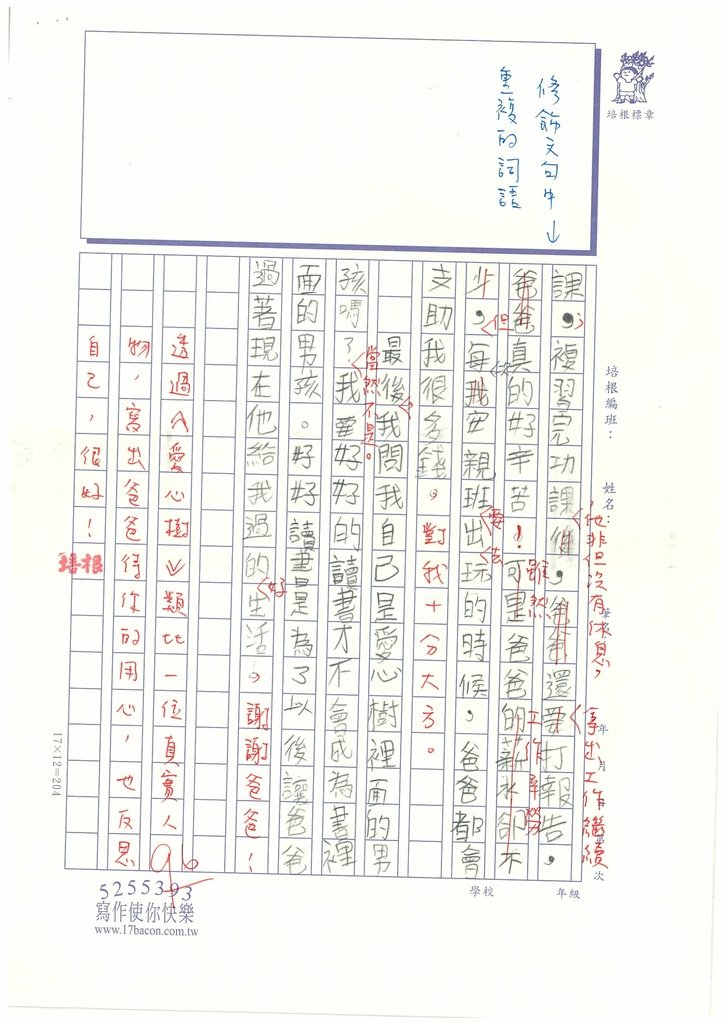 修飾文句中↓
重複的詞語
培根標章
培根編班：
姓名：
年 月
次
他非但沒有休息，
拿出工作繼續
課，複習完功課後，爸爸還要打報告，
爸爸真的好辛苦！可是爸爸的薪水卻不
雖然
工作辛勞
少，每次我安親班出玩的時候，爸爸都會
但
要去
支助我很多錢。對我十分大方。
最後，我問我自己是愛心樹裡面的男
當然不是。
孩嗎？我要好好的讀書才不會成為書裡
面的男孩。好好讀書是為了以後讓爸爸
過著現在他給我過的生活。謝謝爸爸！
好
透過＜愛心樹＞類比一位真實人
物，寫出爸爸待你的用心，也反思
自己，很好！
培根
96
17×12=204
5255393
寫作使你快樂
www.17bacon.com.tw
學校
年級